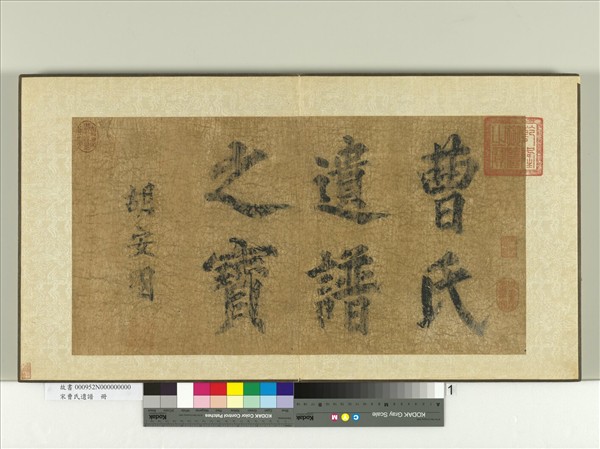 曹氏
遺譜
之寶
胡安國
故書 000952N000000000
宋曹氏遺譜　冊
KODAK Color Control Patches
KODAK Gray Scale
C
Y
M
1